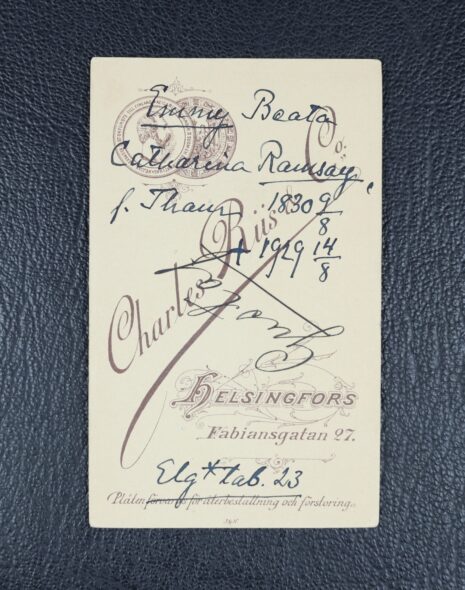 Emmy Beata
Catharina Ramsay,
f. Thauw 1830 9/8
† 1919 14/8
Charles Riis & Co.
HELSINGFORS
Fabiansgatan 27.
Elg* tab. 23
Plåten förvaras för återbeställning och förstoring.